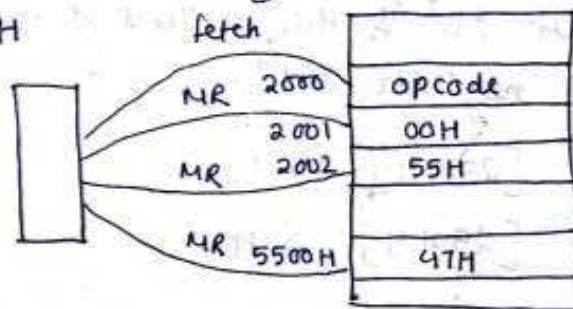 H fetch
MR 2000 opcode
2001 00H
MR 2002 55H
MR 5500H 47H